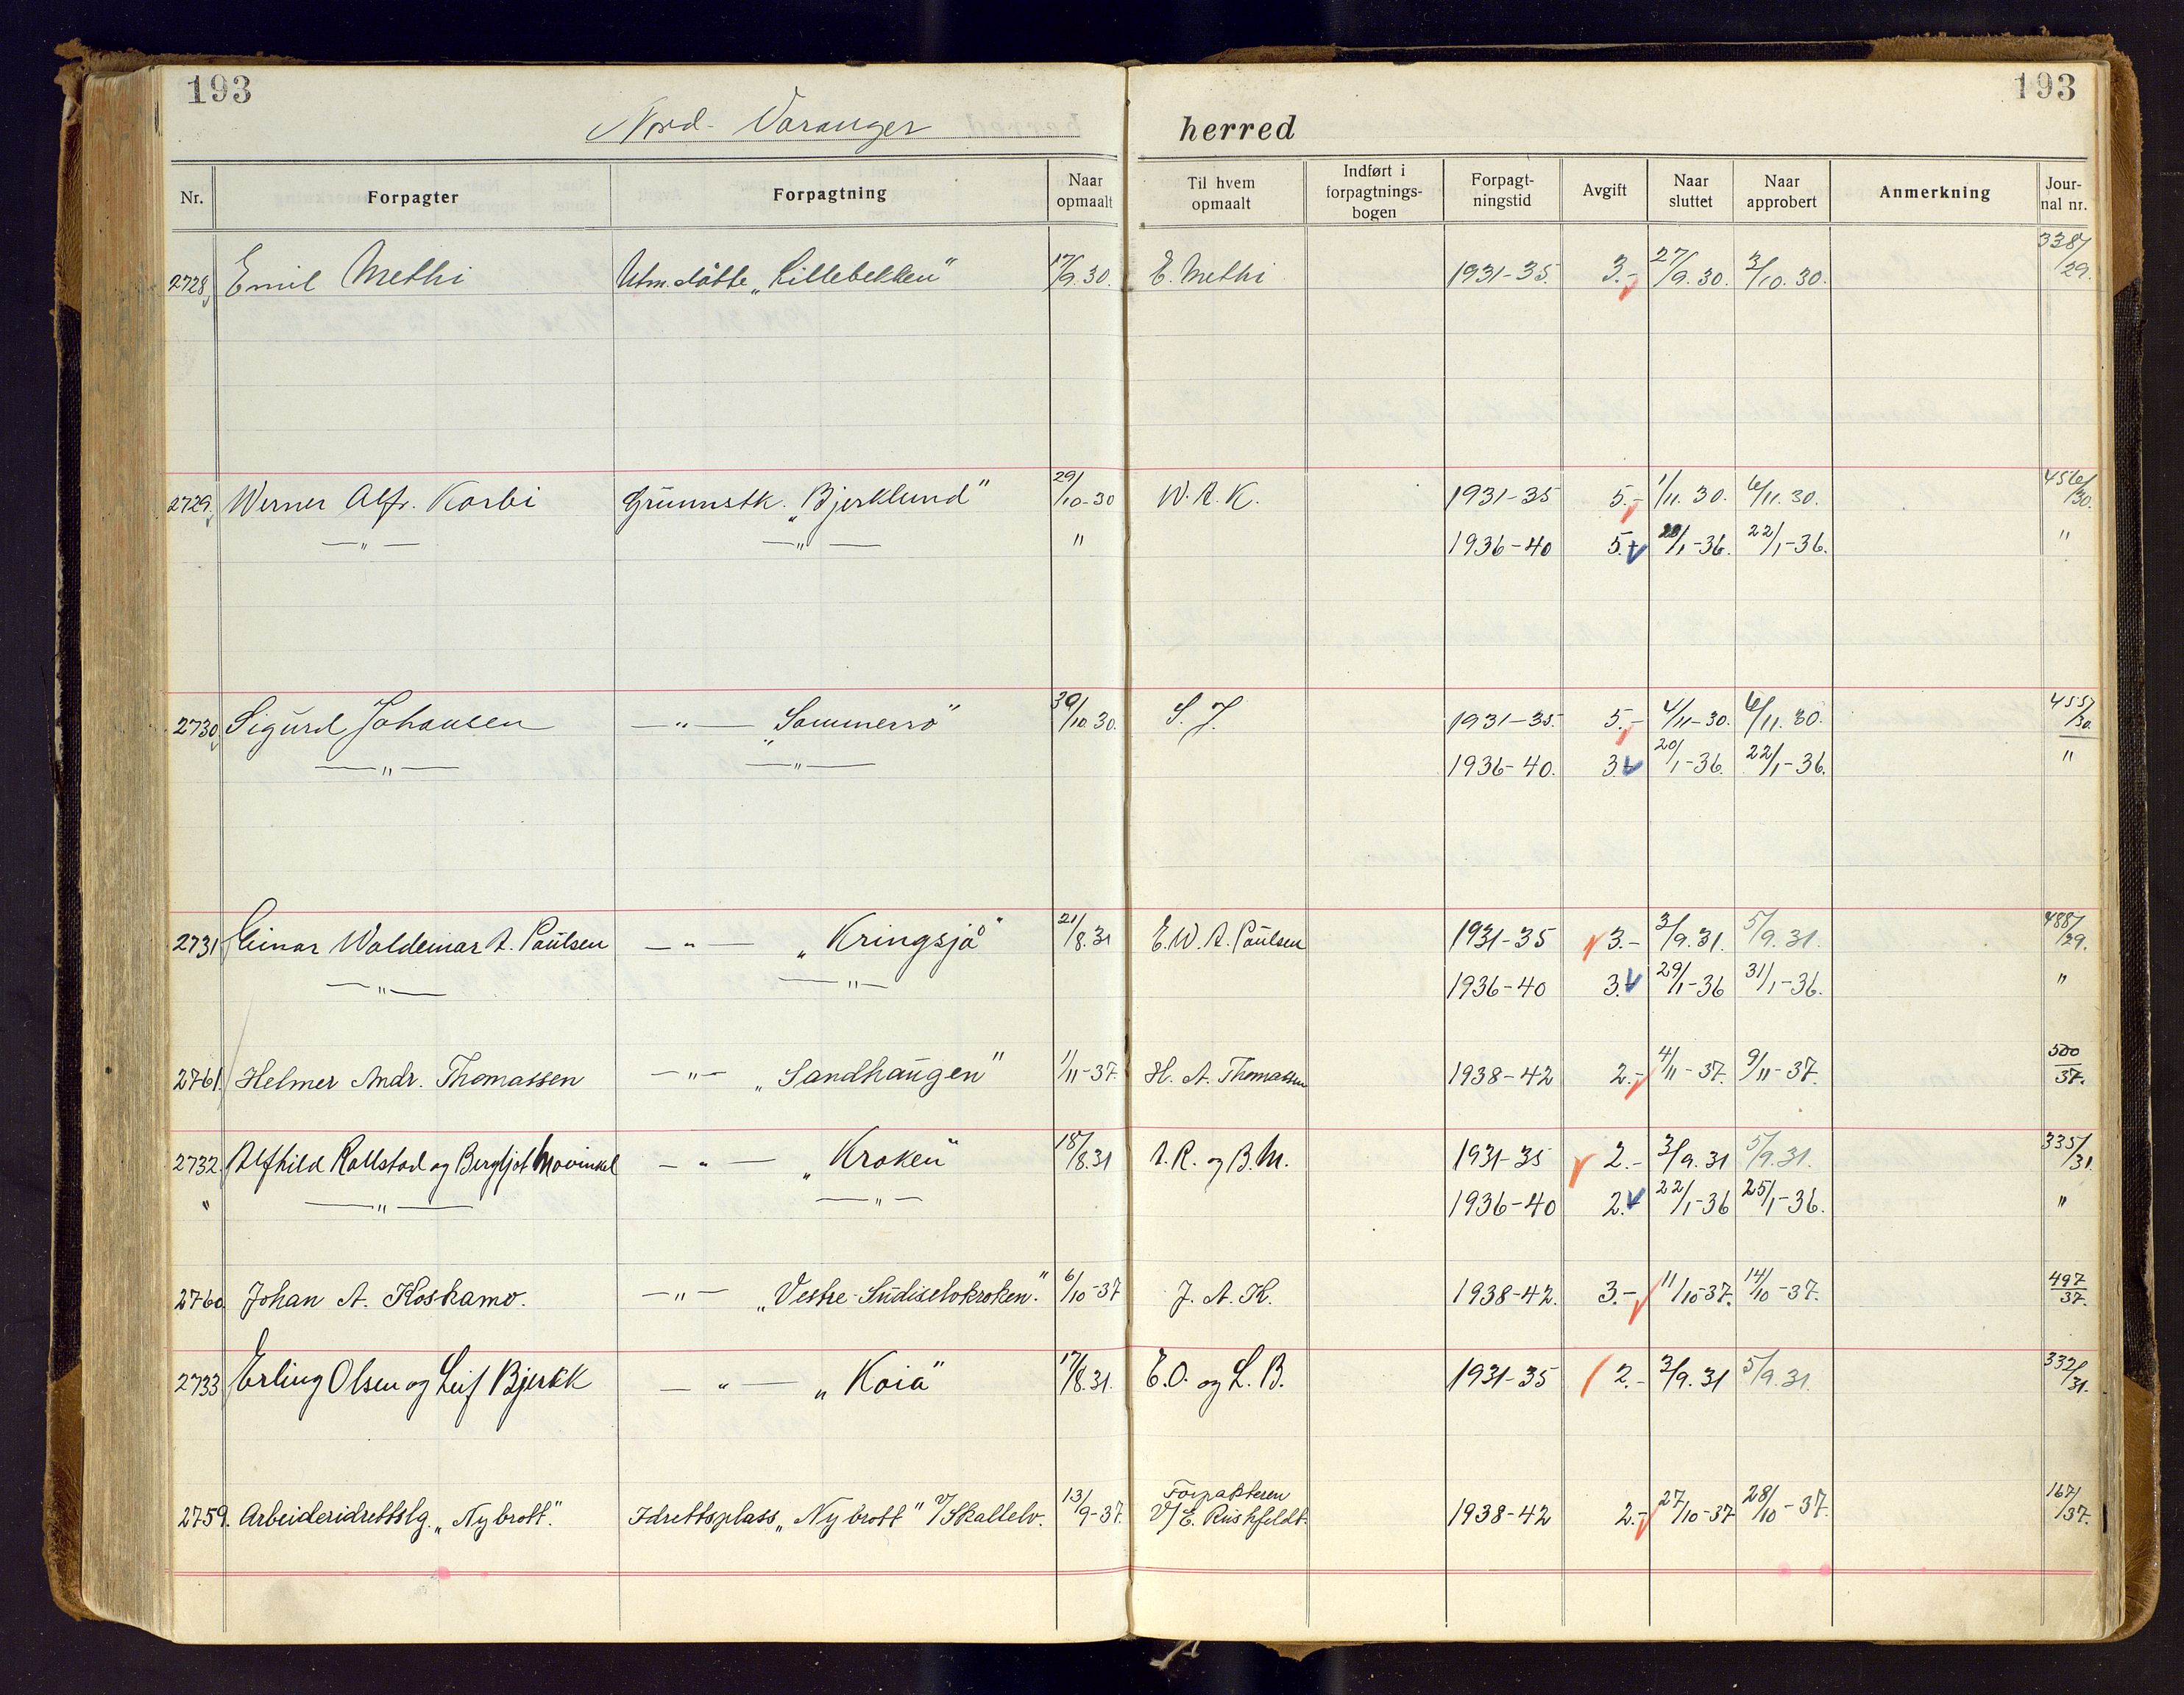 193
193
Nord-Varanger herred
Nr. Forpagter Forpagtning Naar opmaalt Til hvem opmaalt Indført i forpagtnings-bogen Forpagt-ningstid Avgift Naar sluttet Naar approbert Anmerkning Jour-nal nr.
2728 Emil Methi Utm.slåtte „Lillebekken" 17/9.30. E. Methi 1931-35. 3.- 27/9.30. 3/10.30. 3387/29.
2729. Werner Alfr. Korbi Grunnstk. „Bjerklund" 29/10-30 W. A. K. 1931-35 5.- 1/11.30. 6/11.30. 4561/30.
—"— —"— " 1936-40 5.- 20/1-36. 22/1-36. "
2730 Sigurd Johansen —"— „Sommerro" 30/10.30. S. J. 1931-35. 5.- 4/11-30. 6/11.30. 4557/30.
—"— —"— 1936-40. 3.- 20/1-36. 22/1-36. "
2731 Einar Waldemar A. Paulsen —"— „Kringsjå" 21/8.31 E. W. A. Paulsen 1931-35 3.- 3/9.31. 5/9.31. 4887/29.
—"— —"— 1936-40 3. 29/1-36 31/1-36. "
2761. Helmer Andr. Thomassen —"— „Sandhaugen" 1/11-37. H. A. Thomassen 1938-42 2.- 4/11-37. 9/11-37. 500/37.
2732. Alfhild Rollstad og Bergljot Movinkel —"— „Kroken" 18/8.31 A. R. og B. M. 1931-35 2.- 3/9.31 5/9.31. 335/31.
" —"— —"— 1936-40 2. 22/1-36 25/1-36. "
2760 Johan A. Koskamo. —"— „Vestre-Sudiselvkroken." 6/10-37 J. A. K. 1938-42. 3.- 11/10-37. 14/10-37. 497/37.
2733 Erling Olsen og Leif Bjerkk —"— „Koia" 17/8.31. E. O. og L. B. 1931-35 2.- 3/9.31 5/9.31. 332/31.
2759. Arbeideridrettslg. „Nybrott". Idrettsplass „Nybrott" v/Skallelv. 13/9-37. Forpakteren v/E. Rushfeldt. 1938-42 2.- 27/10-37 28/10-37. 167/37.